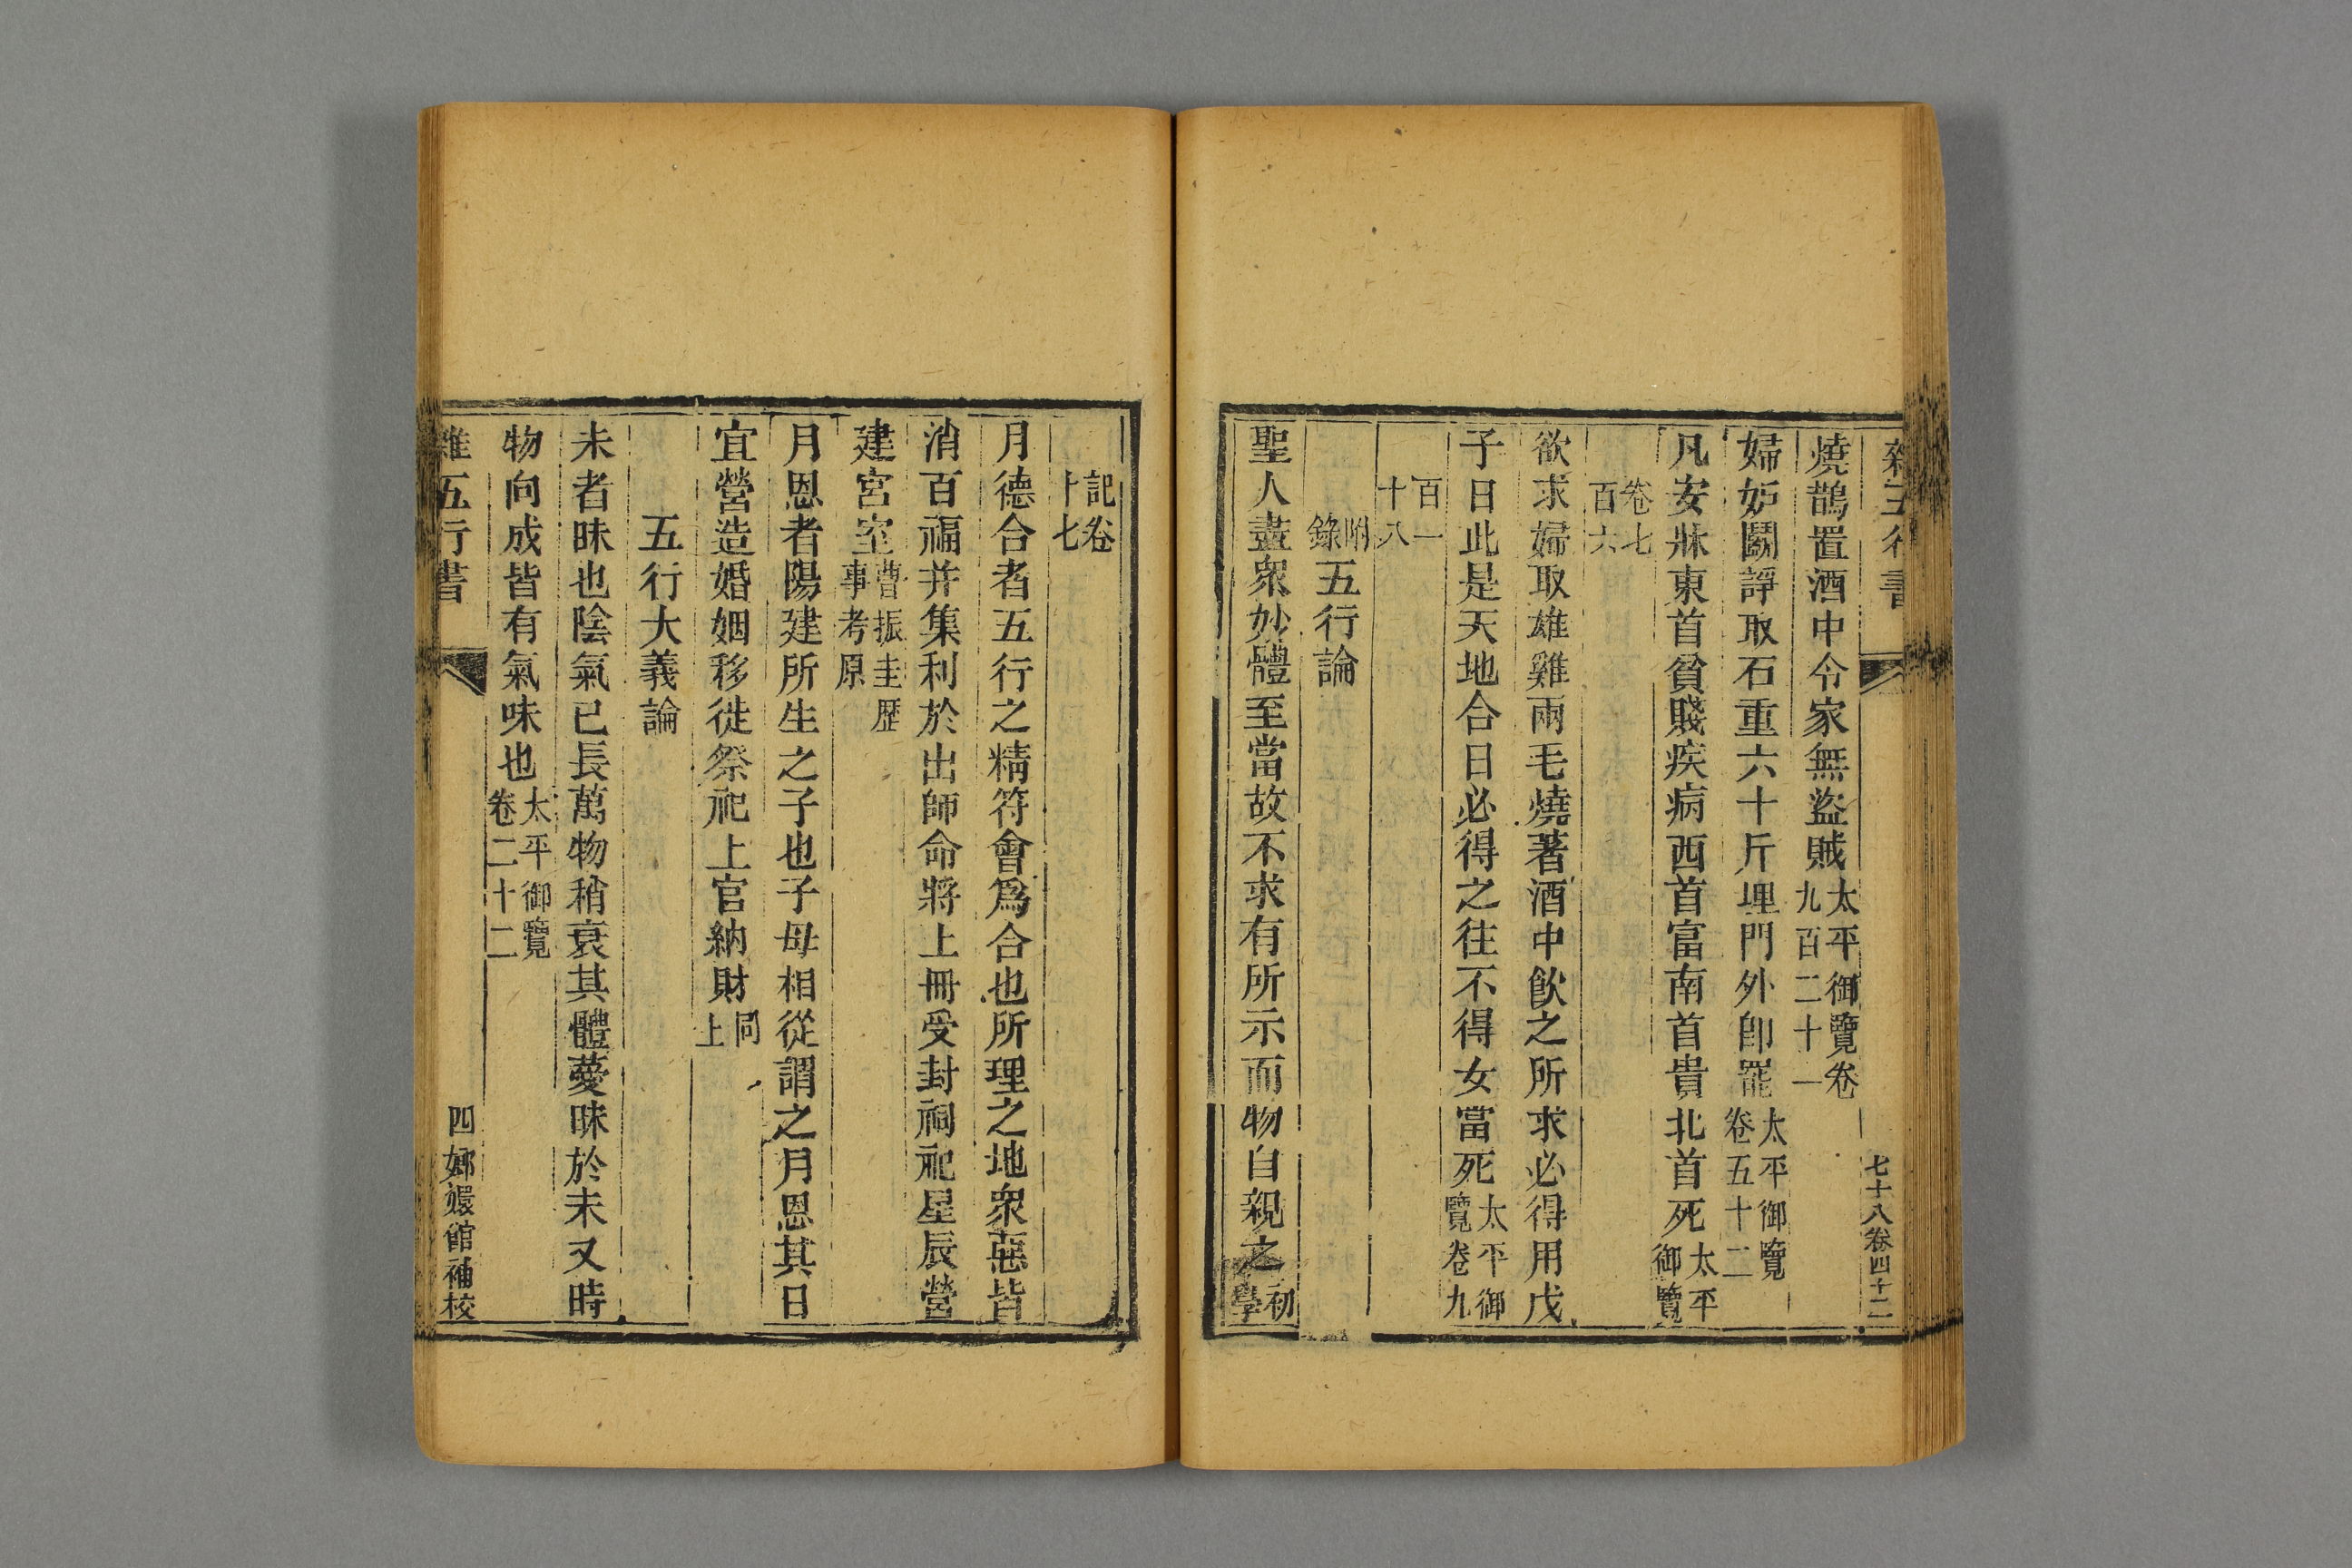 雜五行書
七十八卷四十二
燒鵲置酒中令家無盜賊太平御覽卷九百二十一
婦妒鬭諍取石重六十斤埋門外卽罷太平御覽卷五十二
凡安牀東首貧賤疾病西首富南首貴北首死太平御覽
卷七百六
欲求婦取雄雞兩毛燒著酒中飲之所求必得用戊
子日此是天地合日必得之往不得女當死太平御覽卷九
百一十八
附錄五行論
聖人盡衆妙體至當故不求有所示而物自親之初學
記卷十七
月德合者五行之精符會爲合也所理之地衆惡皆
消百福并集利於出師命將上冊受封祠祀星辰營
建宮室曹振圭歷事考原
月恩者陽建所生之子也子母相從謂之月恩其日
宜營造婚姻移徙祭祀上官納財同上
五行大義論
未者昧也陰氣已長萬物稍衰其體薆昧於未又時
物向成皆有氣味也太平御覽卷二十二
雜五行書
四 嫏嬛館補校